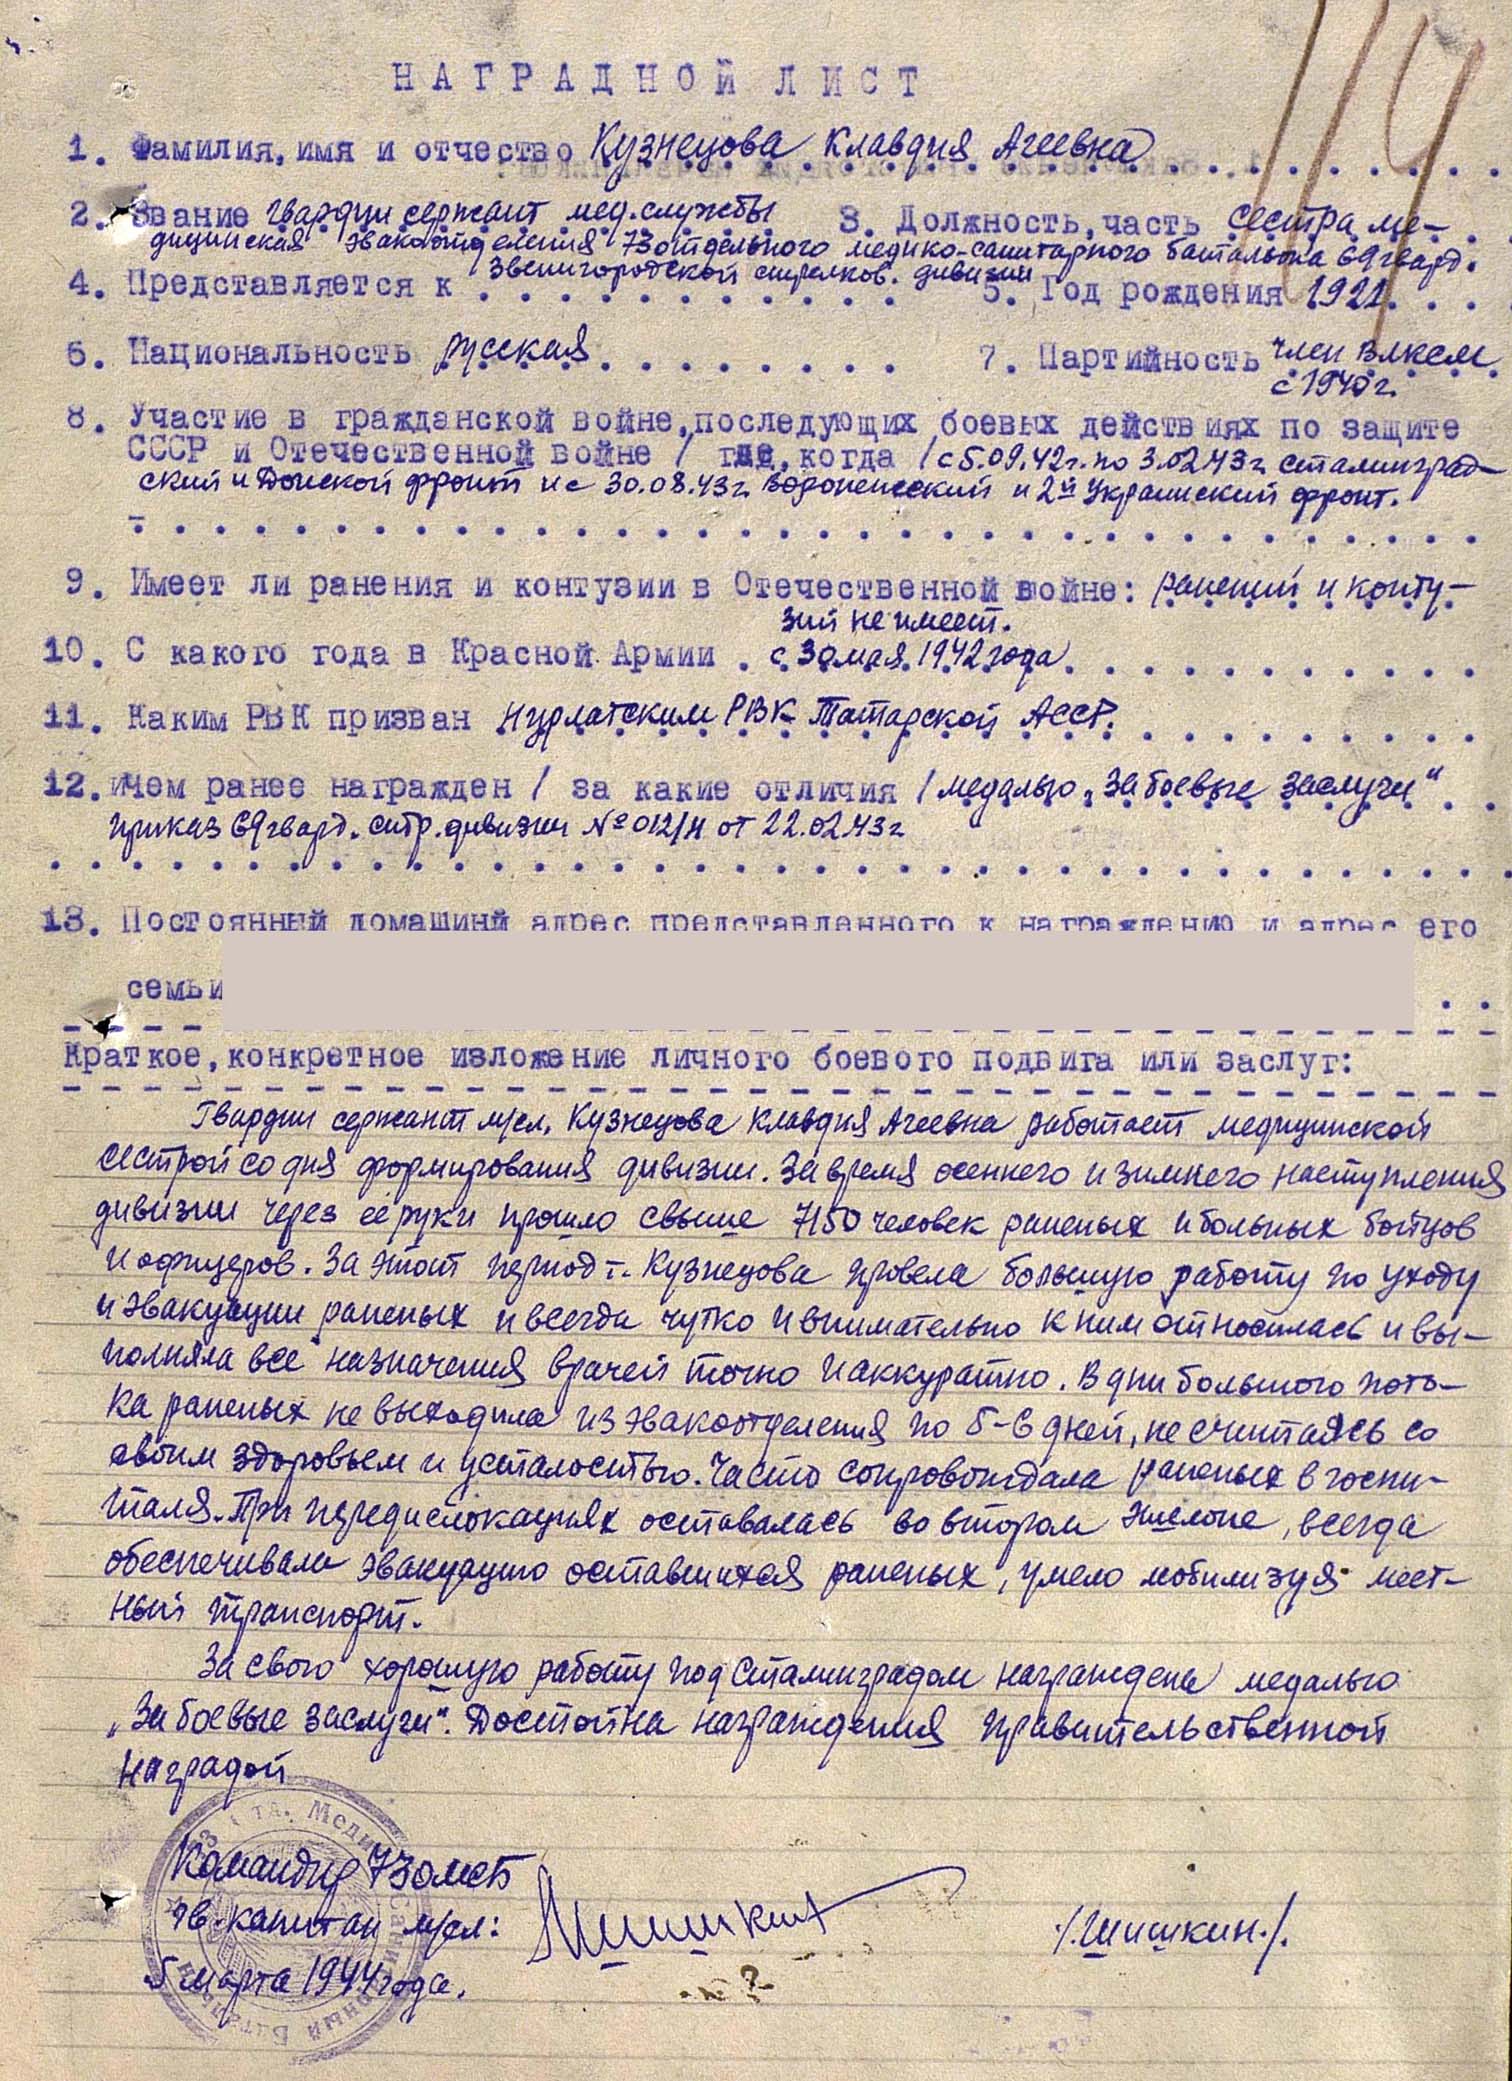 НАГРАДНОЙ ЛИСТ
114
1. Фамилия, имя и отчество Кузнецова Клавдия Агеевна
2. Звание гвардии сержант мед. службы 3. Должность, часть сестра ме-
дицинская эвакоотделения 73 отдельного медико-санитарного батальона 69 гвард.
Звенигородской стрелков. дивизии
4. Представляется к 5. Год рождения 1921
6. Национальность русская 7. Партийность член ВЛКСМ
с 1940 г.
8. Участие в гражданской войне, последующих боевых действиях по защите
СССР и Отечественной войне / где, когда / с 5.09.42 г. по 3.02.43 г. Сталинград-
ский и Донской фронт и с 30.08.43 г. Воронежский и 2й Украинский фронт.
9. Имеет ли ранения и контузии в Отечественной войне: ранений и конту-
зий не имеет.
10. С какого года в Красной Армии с 30 мая 1942 года
11. Каким РВК призван Нурлатским РВК Татарской АССР.
12. Чем ранее награжден / за какие отличия / медалью „За боевые заслуги"
приказ 69 гвард. стр. дивизии № 012/н от 22.02.43 г
13. Постоянный домашинй адрес представленного к награждению и адрес его
семьи
Краткое, конкретное изложение личного боевого подвига или заслуг:
Гвардии сержант м/сл. Кузнецова Клавдия Агеевна работает медицинской
сестрой со дня формирования дивизии. За время осеннего и зимнего наступления
дивизии через её руки прошло свыше 7150 человек раненых и больных бойцов
и офицеров. За этот период т. Кузнецова провела большую работу по уходу
и эвакуации раненых и всегда чутко и внимательно к ним относилась и вы-
полняла все назначения врачей точно и аккуратно. В дни большого пото-
ка раненых не выходила из эвакоотделения по 5-6 дней, не считаясь со
своим здоровьем и усталостью. Часто сопровождала раненых в госпи-
таля. При передислокациях оставалась во втором эшелоне, всегда
обеспечивала эвакуацию оставшихся раненых, умело мобилизуя мест-
ный транспорт.
За свою хорошую работу под Сталинградом награждена медалью
„За боевые заслуги". Достойна награждения правительственной
наградой
Командир 73 ОМСБ
гв. капитан м/сл: Шишкин /.Шишкин./.
5 марта 1944 года.